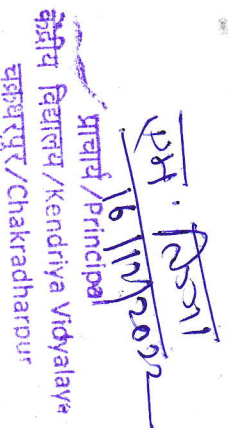 16/12/2022
प्राचार्य/Principal
केन्द्रीय विद्यालय/Kendriya Vidyalaya
चक्रधरपुर/Chakradharpur